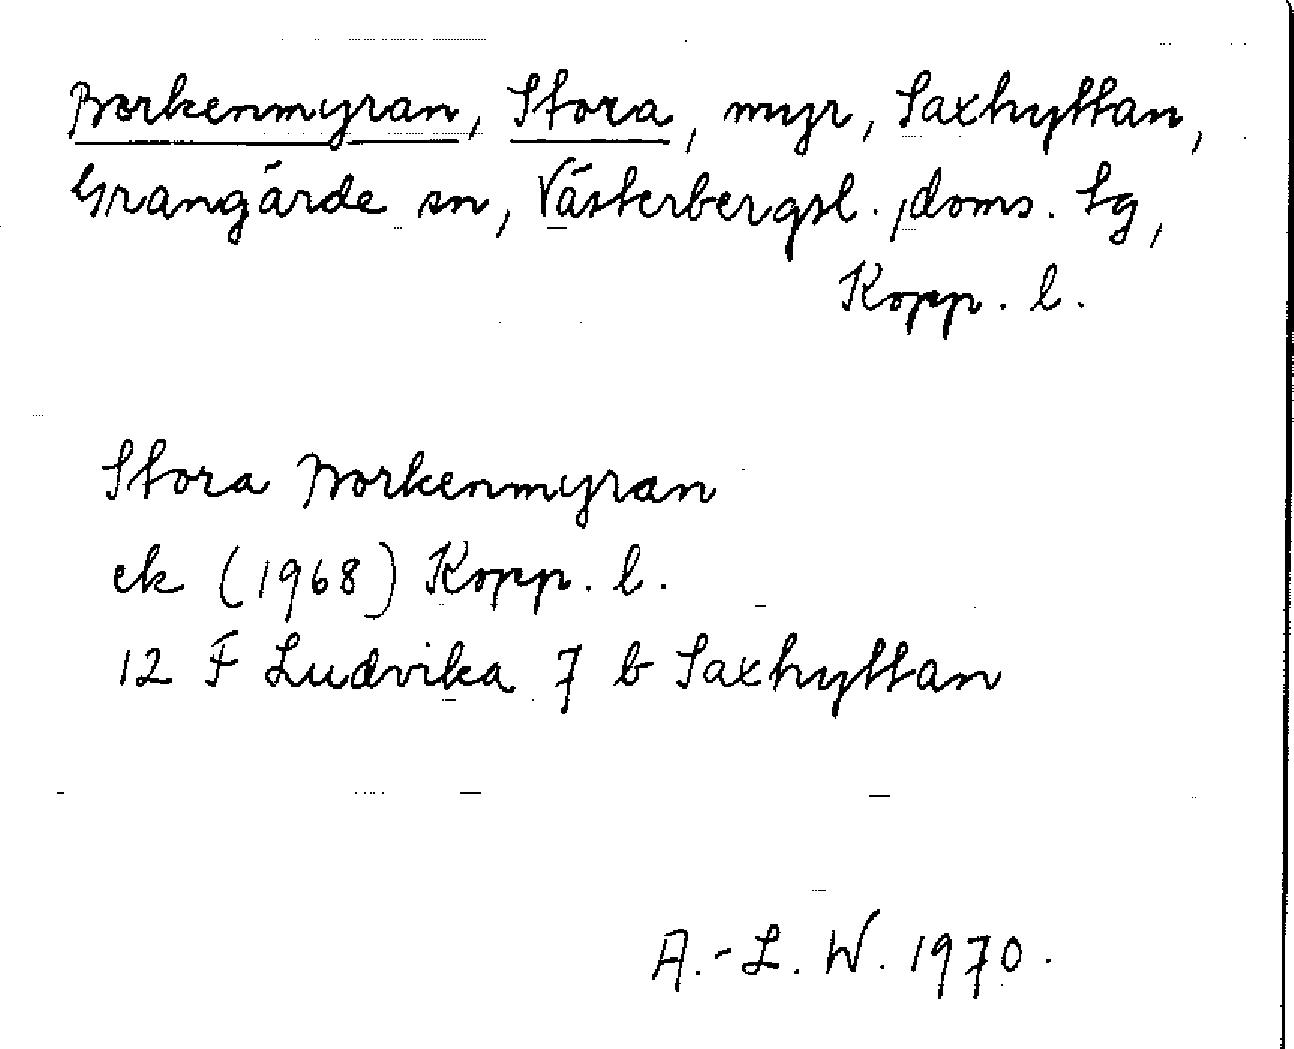 Borkenmyran, Stora, myr, Saxhyttan,
Grangärde sn, Västerbergsl. doms. tg,
Kopp. l.
Stora Borkenmyran
ek (1968) Kopp. l.
12 F Ludvika 7 b Saxhyttan
A.-L. W. 1970.